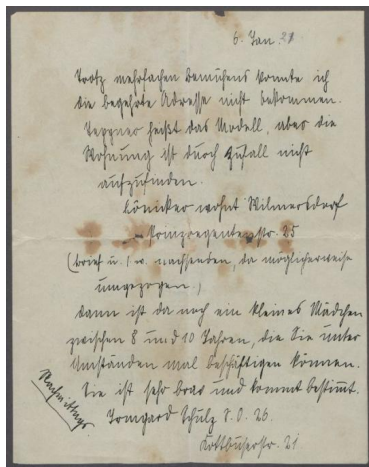 6. Jan. 21
Trotz mehrfachen Bemühens konnte ich
die begehrte Adresse nicht bekommen.
heißt das Modell, aber die
Wohnung ist durch Zufall nicht
aufzufinden.
Könicker wohnt Wilmersdorf
Prinzregentenstr. 25
(Brief u. / w. nachsenden, da möglicherweise
umgezogen.)
Dann ist da noch ein kleines Mädchen
zwischen 8 und 10 Jahren, die Sie unter
Umständen mal beschäftigen können.
Sie ist sehr brav und kommt bestimmt.
Irmgard Schülz S.O. 26.
Kottbuserstr. 21
Nachmittags